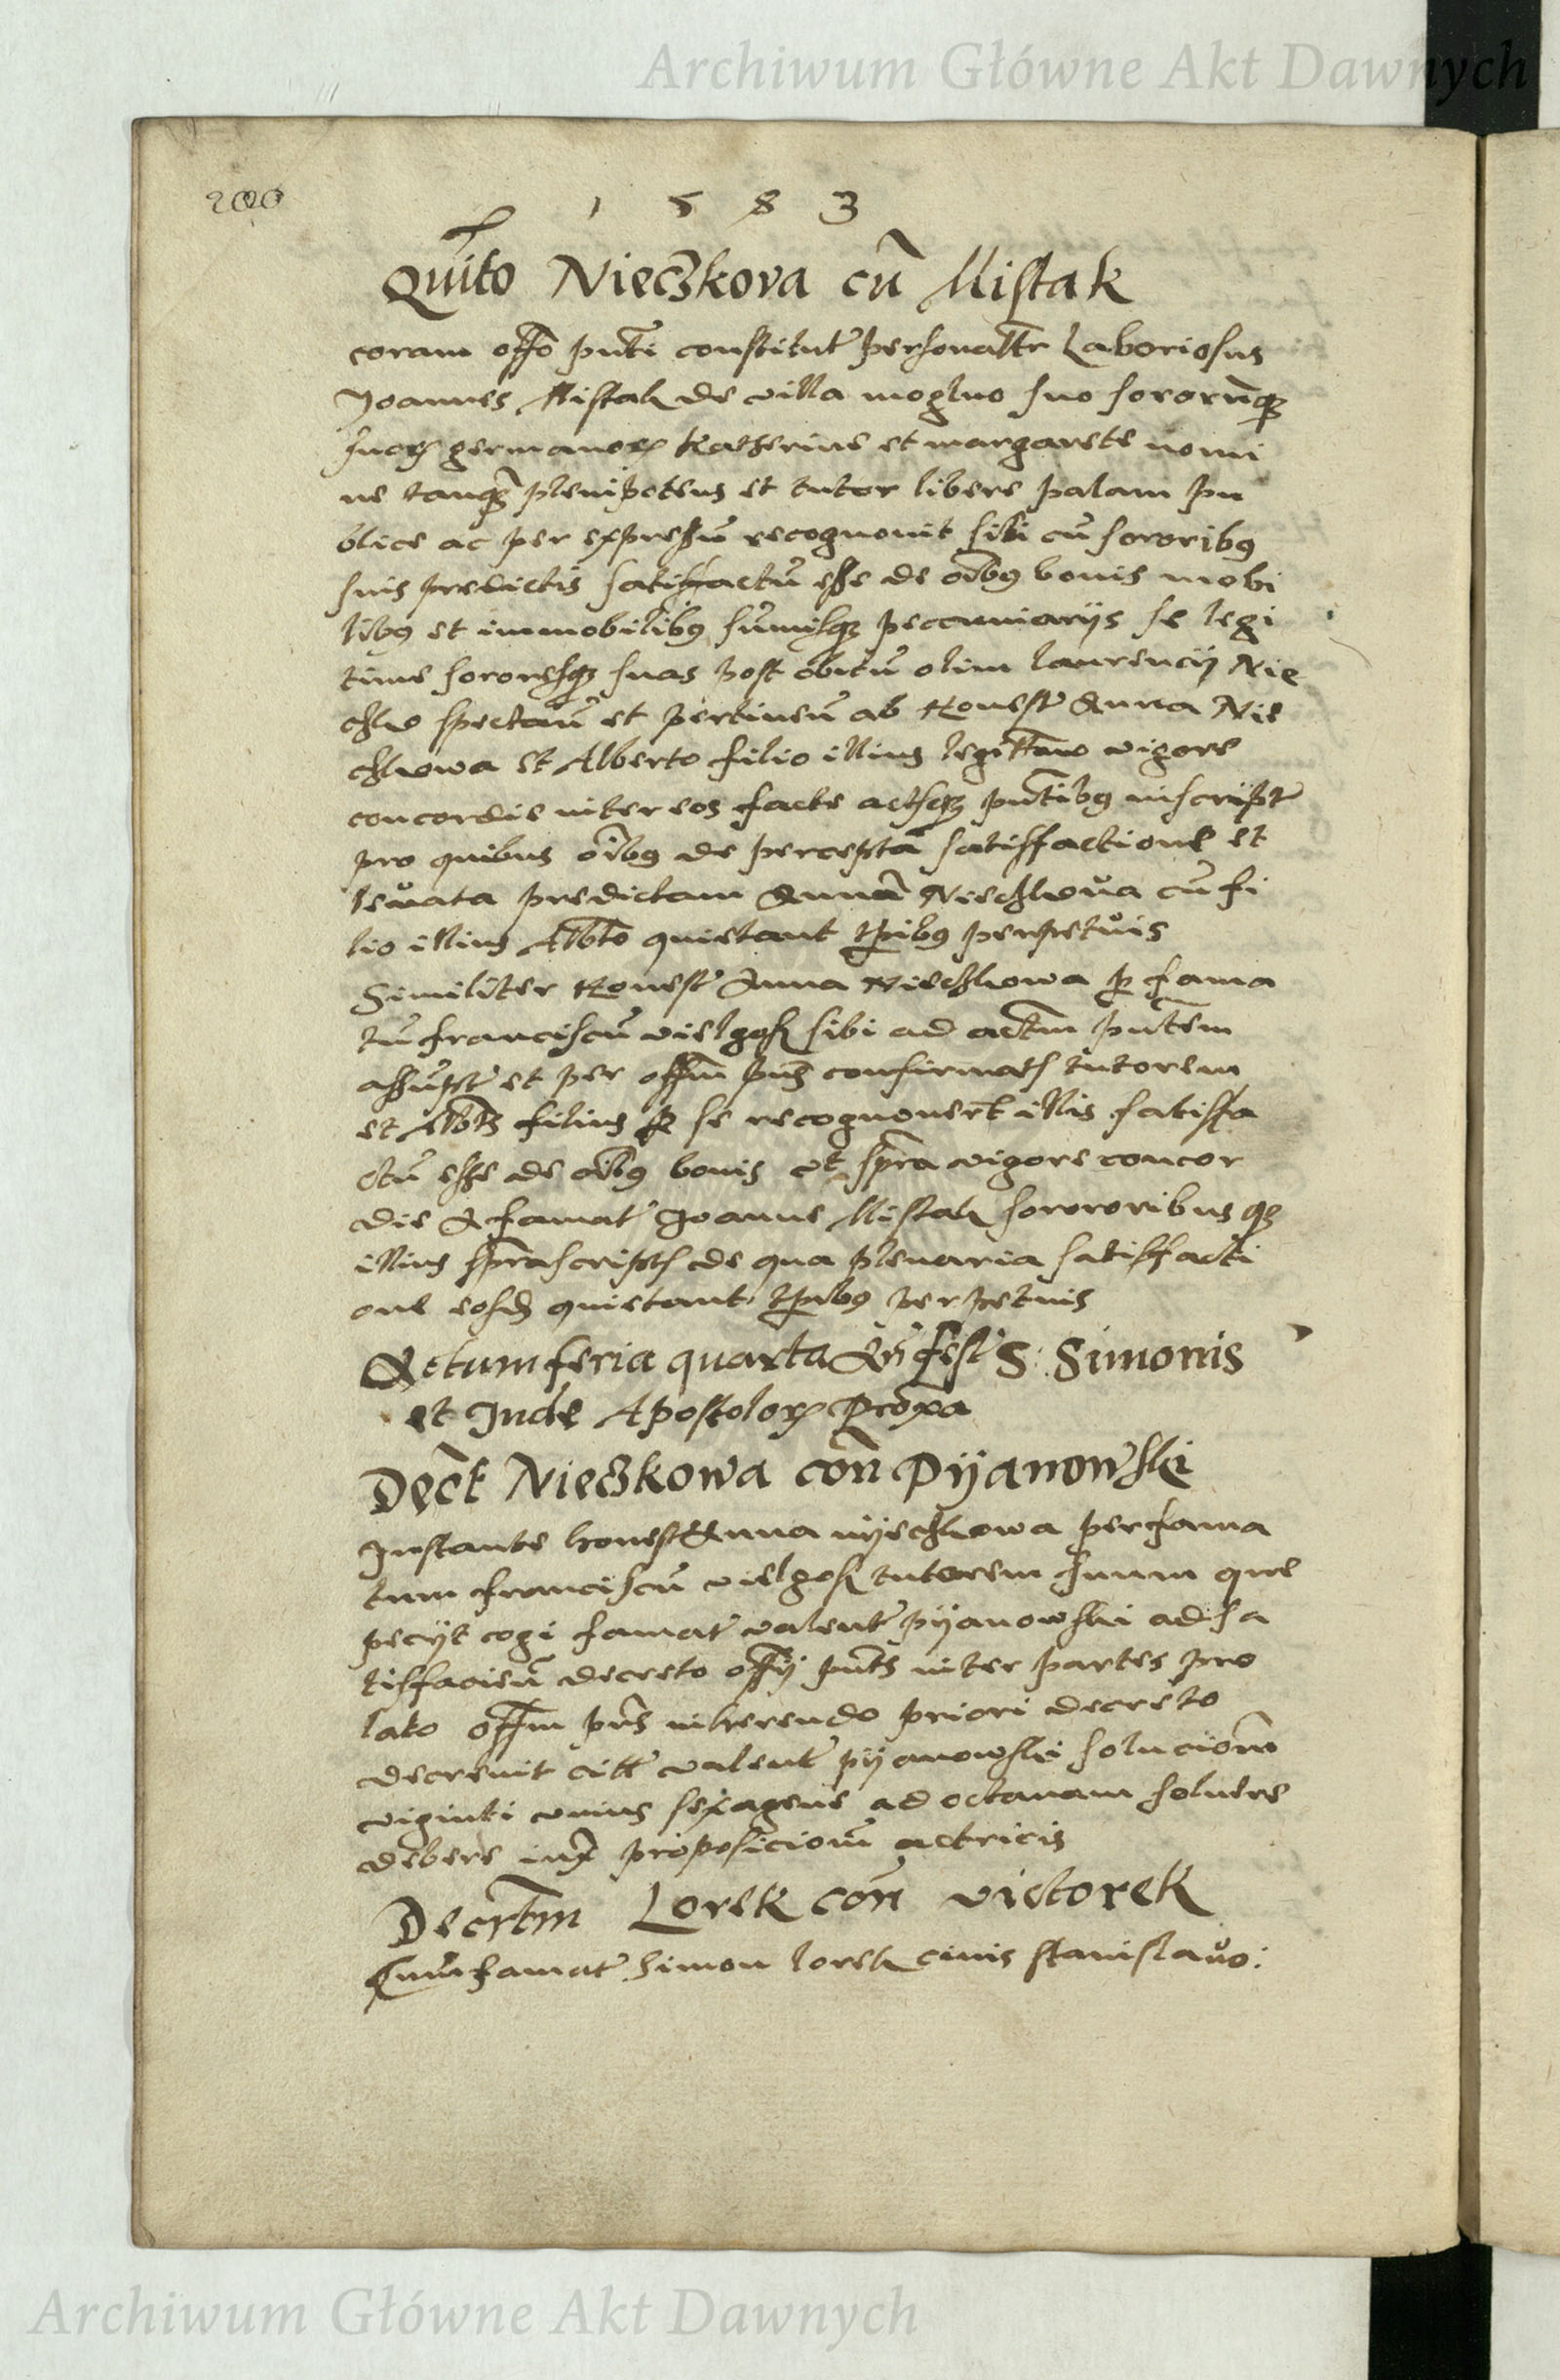 Archiwum Główne Akt Dawnych
200
1583
Quito Nieczkova cū Mistak
coram offo pnti constitut personaltr Laboriosus
Joannes Mistak de villa suo sororūq
suorꝝ germanorꝝ Katherine et margarete nomi
ne tanq plenipotens et tutor libere palam pu
blice ac per expressū recognouit sibi cū sororibꝰ
suis predictis satisfactū esse de oībꝰ bonis mobi
libꝰ et immobilibꝰ sūmisq peccuniarijs se legi
time sororesq suas post obitū olim laurencij Nie
czko spectañ et pertineñ ab Honest Anna Nie
czkowa et Alberto filio illius legittimo vigore
concordie inter eos facte actisq pntibꝰ inscript
pro quibus oībꝰ de percepta satisfactione et
levata predictam Annā Nieczkova cū fi
lio illius Albto quietant tpibꝰ perpetuis
Similiter Honest Anna Nieczkowa p fama
tū franciscū vielgosz sibi ad actm pntem
assūpt et per offm pns confirmat tutorem
et Albts filius p se recognouert illis satisfa
ctū esse de oībꝰ bonis ut spra vigore concor
die A famat Joanne Mistak sorororibus q
illius sprascript de qua plenaria satisfacti
one eosd quietant tpibꝰ perpetuis
Actum feria quarta An fest S: Simonis
et Jude Apostolorꝝ Proxa
Dect Nieczkowa con Pijanowski
Instante honest Anna nijeczkowa per fama
tum franciscū vielgosz tutorem suum que
pecijt cogi famat valent pijanowski ad sa
tisfacieñ decreto offij pnts inter partes pro
lato offm pns inherendo priori decreto
decrevit citt valent pijanowski solucionm
viginti unius sexagene ad octauam soluere
debere iux proposicionm actricis
Decrtm Lorek con victorek
Cum famat Simon lorek civis stanislavo:
Archiwum Główne Akt Dawnych